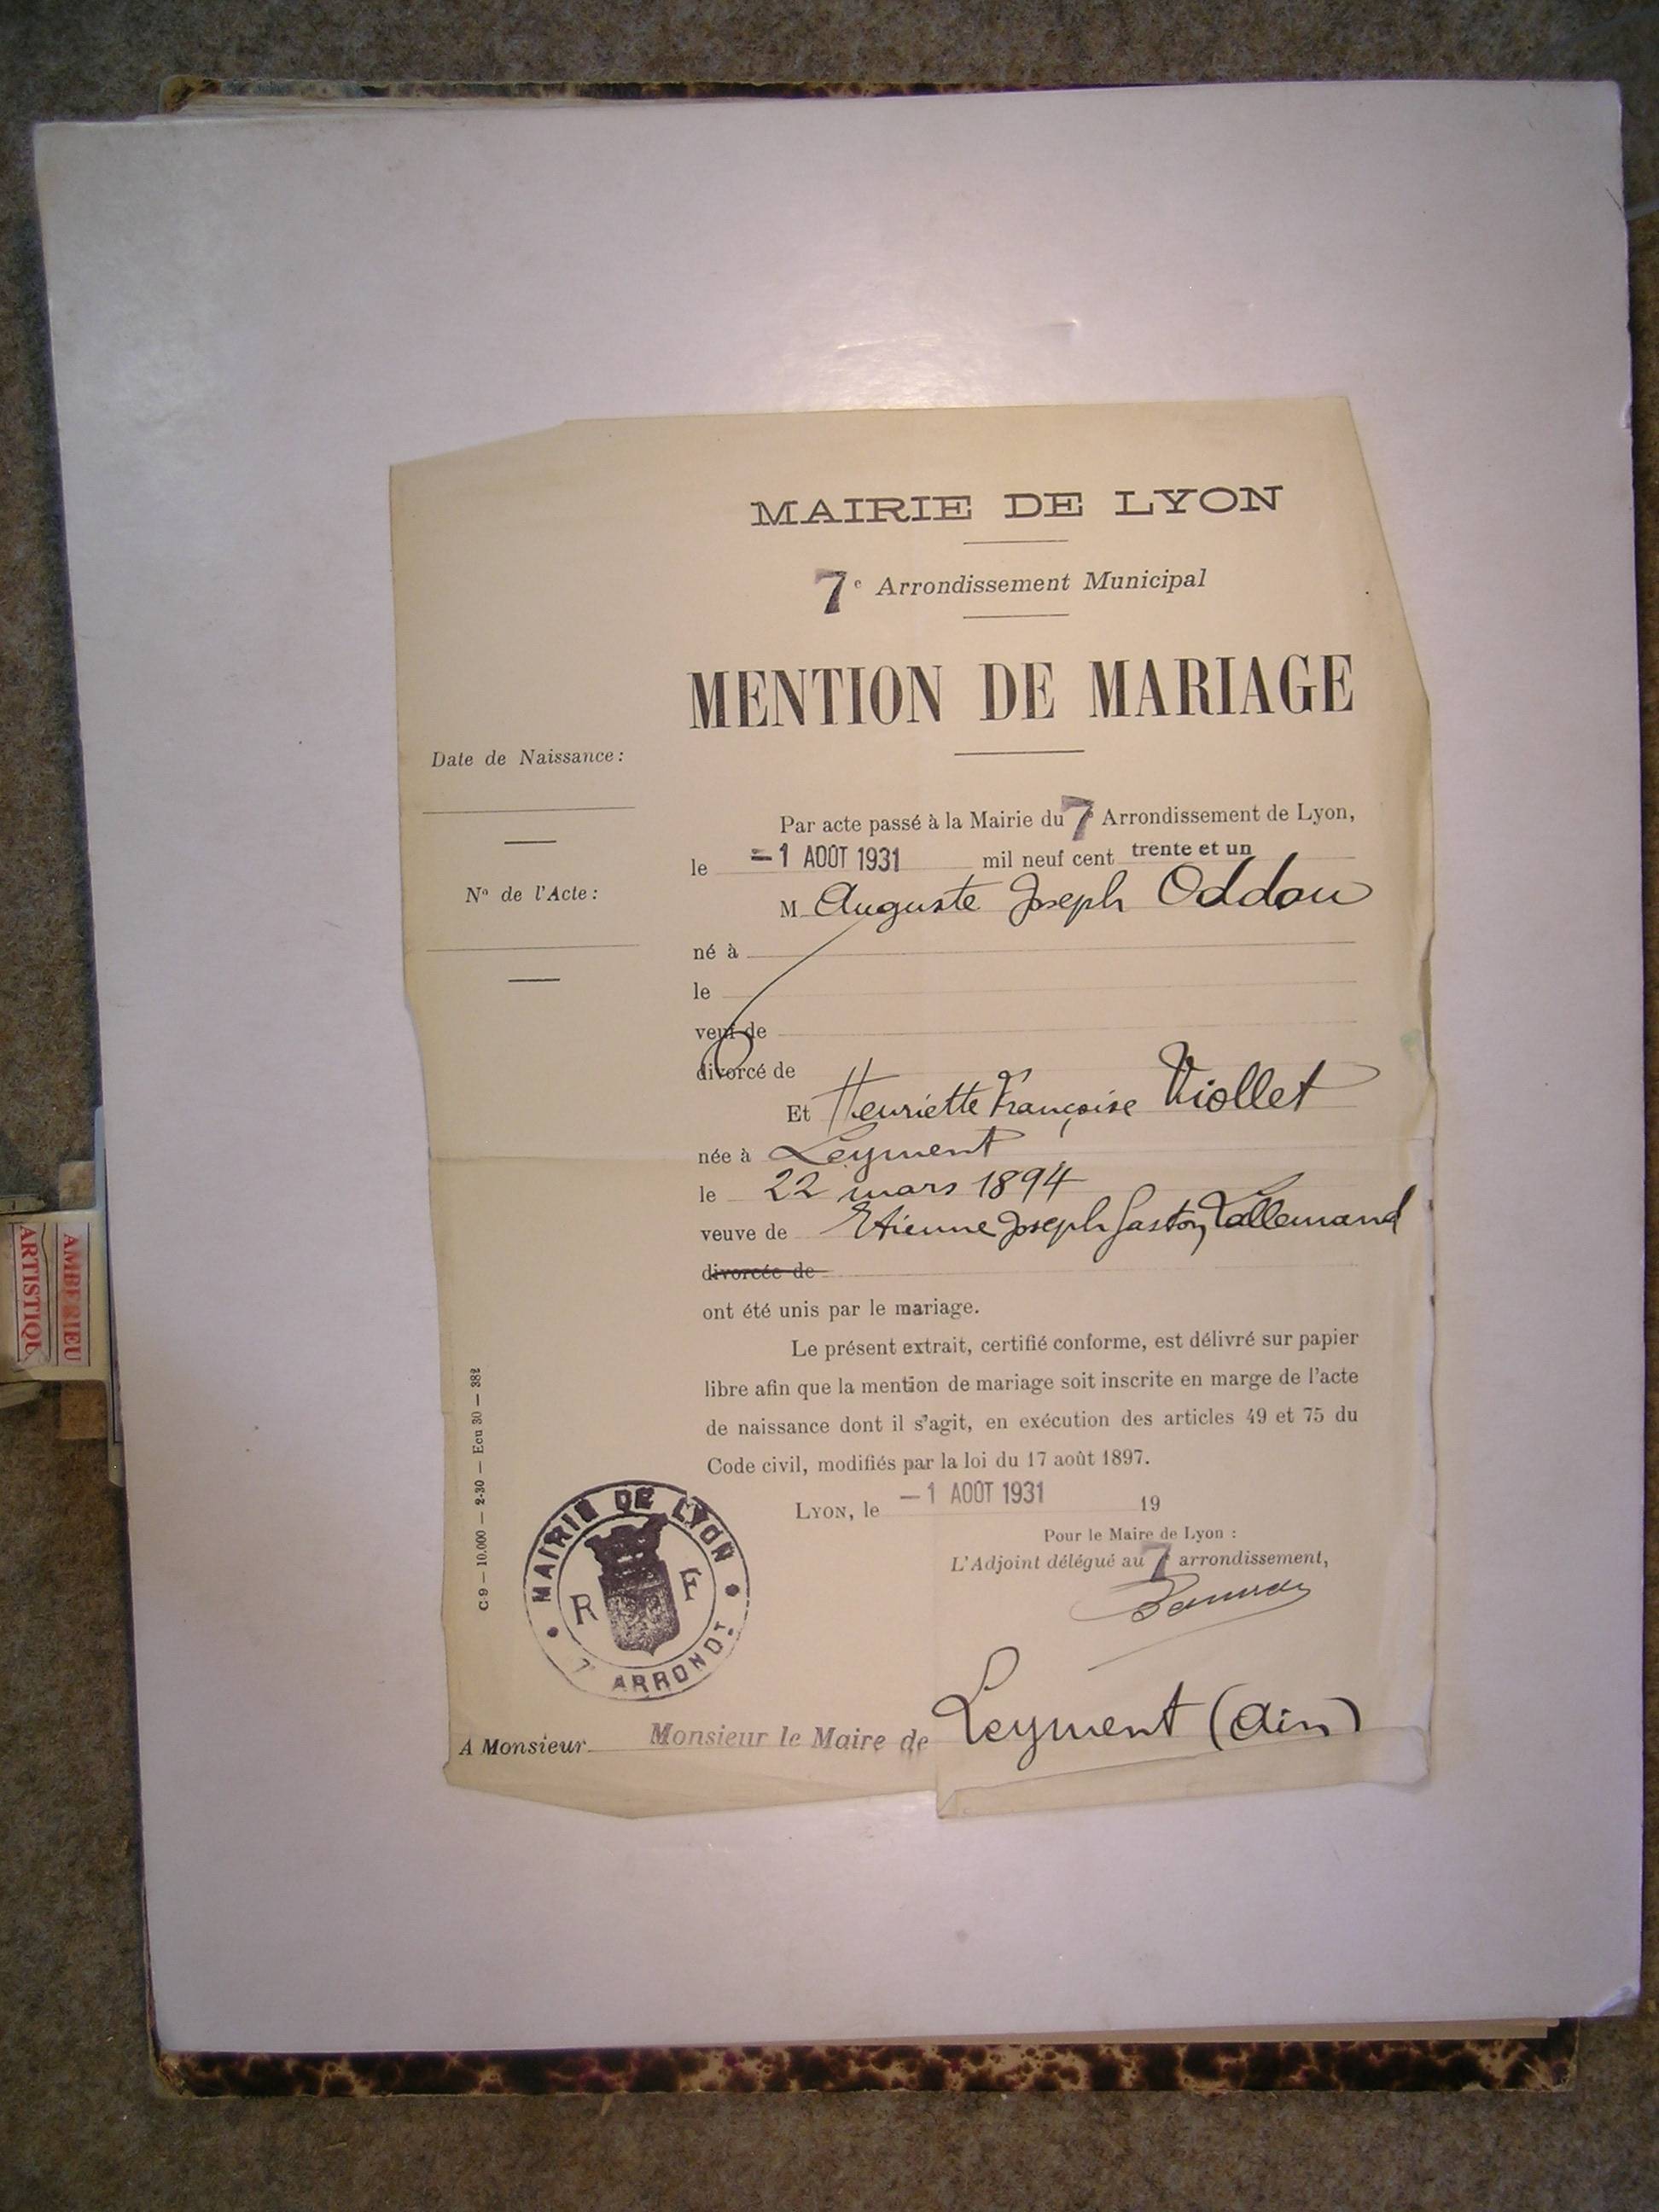 MAIRIE DE LYON
7e Arrondissement Municipal
MENTION DE MARIAGE
Date de Naissance :
No de l'Acte :
Par acte passé à la Mairie du 7 Arrondissement de Lyon,
le -1 AOÛT 1931 mil neuf cent trente et un
M Auguste Joseph Oddou
né à
le
veuf de
divorcé de
Et Henriette Françoise Viollet
née à Leyment
le 22 mars 1894
veuve de Etienne Joseph Gaston Lallemand
divorcée de
ont été unis par le mariage.
Le présent extrait, certifié conforme, est délivré sur papier
libre afin que la mention de mariage soit inscrite en marge de l'acte
de naissance dont il s'agit, en exécution des articles 49 et 75 du
Code civil, modifiés par la loi du 17 août 1897.
LYON, le -1 AOÛT 1931 19
Pour le Maire de Lyon :
L'Adjoint délégué au 7 arrondissement,
MAIRIE DE LYON
R F
7 ARRONDT
A Monsieur Monsieur le Maire de Leyment (Ain)
C.9 — 10.000 — 2-30 — Ecu 30 — 382
AMBERIEU
ARTISTIQUE